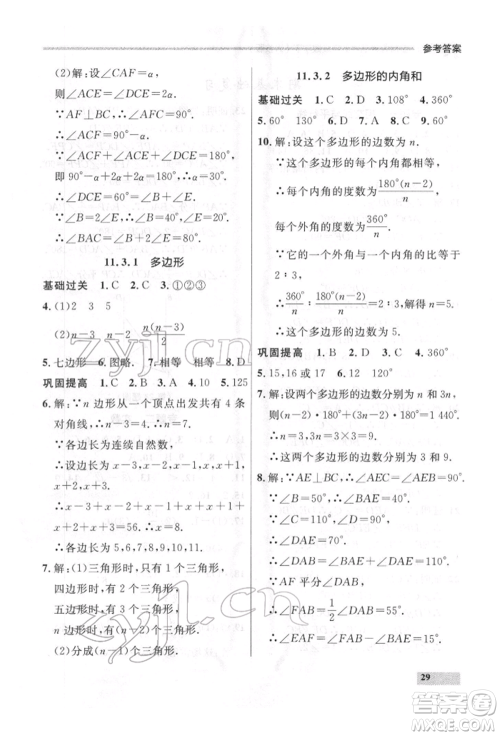 参考答案
(2)解：设∠CAF=α，
则∠ACE=∠DCE=
∠CAE+∠AEC=α+∠E.
∵AF⊥BC，∴∠ACF+α=90°.
∵∠ACF+∠ACE+∠DCE=180°，
即 90°-α+2(α+∠E)=180°，
∴α+2∠E=90°.
∵∠B=2∠E，∴∠B+α=90°，
∴∠BAC=∠B+α.
11.3.1 多边形
基础过关 1.C 2.C 3.①②③
4.(1)2 3 5
(2)n-3 n-2 n(n-3)/2
5.七边形 6.图略. 7.相等 相等 8.D
巩固提高 1.C 2.B 3.A 4.10 5.125
6.解：∵n 边形从一个顶点出发共有 4 条
对角线，∴n=7.
∵各边长为连续自然数，
∴设边长为 x-3，x-2，x-1，x，
x+1，x+2，x+3.
∴x-3+x-2+x-1+x+x+1+
x+2+x+3=56，∴x=8，
∴各边长为 5，6，7，8，9，10，11.
7.解：(1)三角形时，只有 1 个三角形，
四边形时，有 2 个三角形，
五边形时，有 3 个三角形，
n 边形时，有(n-2)个三角形.
(2)分成(n-1)个三角形.
11.3.2 多边形的内角和
基础过关 1.C 2.D 3.108° 4.360°
5.60° 130° 6.C 7.A 8.D 9.60°
10.解：设这个多边形的边数为 n.
∵这个多边形的内角都相等，
∴每个内角的度数为 180°(n-2)/n，
每个外角的度数为 360°/n.
∵它的一个外角与一个内角的比等于
2∶3，
∴360°/n∶180°(n-2)/n=2∶3，∴n=5.
巩固提高 1.B 2.D 3.C 4.360°
5.15，16 或 17 6.12
7.解：设两个多边形的边数分别为 n 和 3n，
则(n-2)·180°+(3n-2)·180°=1 440°.
∴n=3，∴3n=3×3=9.
∴两个多边形的边数分别为 3 和 9.
8.解：∵AE⊥BC，∴∠AEC=∠AEB=90°.
∵∠B=50°，∴∠BAE=40°.
∵∠C=110°，∠D=90°，
∴∠DAE=70°.
∴∠DAB=∠BAE+∠DAE=110°.
∵AF 平分∠DAB，
∴∠FAB=1/2∠DAB=55°，
∴∠EAF=∠FAB-∠BAE=15°.
zyjl.cn
zyjl.cn
29